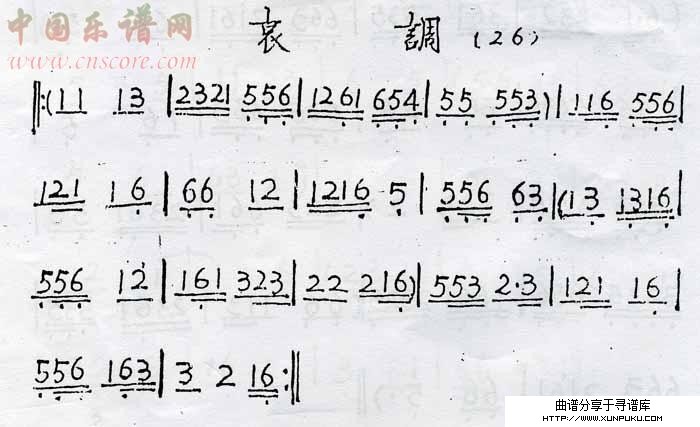 中国乐谱网
www.cnscore.com
哀 調 (26)
‖:(11 13 | 2321 556 | 1261 654 | 55 553) | 116 556 |
121 16 | 66 12 | 1216 5 | 556 63 | (13 1316 |
556 12 | 161 323 | 22 216) | 553 2·3 | 121 16 |
556 163 | 3 2 16 :‖
曲谱分享于寻谱库
HTTP://WWW.XUNPUKU.COM